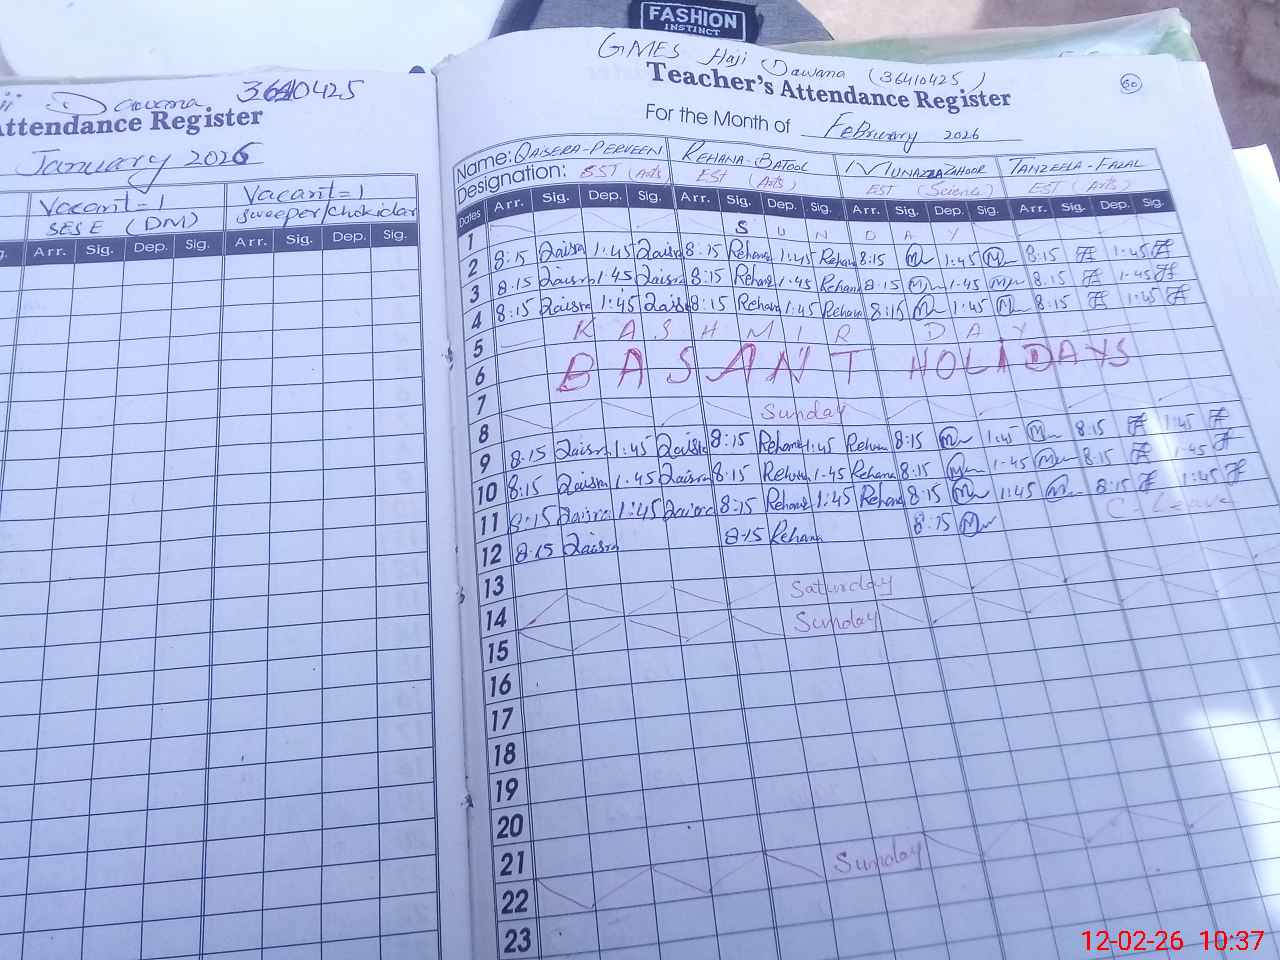 FASHION
INSTINCT
Dawana 36410425
Attendance Register
January 2026
Vacant=1 Vacant=1
SESE (DM) sweeper/chokidar
Arr. Sig. Dep. Sig. Arr. Sig. Dep. Sig.
GMES Haji Dawana (36410425)
Teacher's Attendance Register
For the Month of February 2026
Name: QAISERA-PERVEEN REHANA-BATOOL MUNAZZA ZAHOOR TANZEELA-FAZAL
Designation: SST (Arts) EST (Arts) EST (Science) EST (Arts)
Dates Arr. Sig. Dep. Sig. Arr. Sig. Dep. Sig. Arr. Sig. Dep. Sig. Arr. Sig. Dep. Sig.
1 SUNDAY
2 8:15 Qaisra 1:45 Qaisra 8:15 Rehana 1:45 Rehana 8:15 1:45 8:15 1:45
3 8:15 Qaisra 1:45 Qaisra 8:15 Rehana 1:45 Rehana 8:15 1:45 8:15 1:45
4 8:15 Qaisra 1:45 Qaisra 8:15 Rehana 1:45 Rehana 8:15 1:45 8:15 1:45
5 KASHMIR DAY
6 BASANT HOLIDAYS
7
8 Sunday
9 8:15 Qaisra 1:45 Qaisra 8:15 Rehana 1:45 Rehana 8:15 1:45 8:15 1:45
10 8:15 Qaisra 1:45 Qaisra 8:15 Rehana 1:45 Rehana 8:15 1:45 8:15 1:45
11 8:15 Qaisra 1:45 Qaisra 8:15 Rehana 1:45 Rehana 8:15 1:45 8:15 1:45
12 8:15 Qaisra 8:15 Rehana 8:15 C-Leave
13
14 Saturday
15 Sunday
16
17
18
19
20
21
22 Sunday
23
12-02-26 10:37